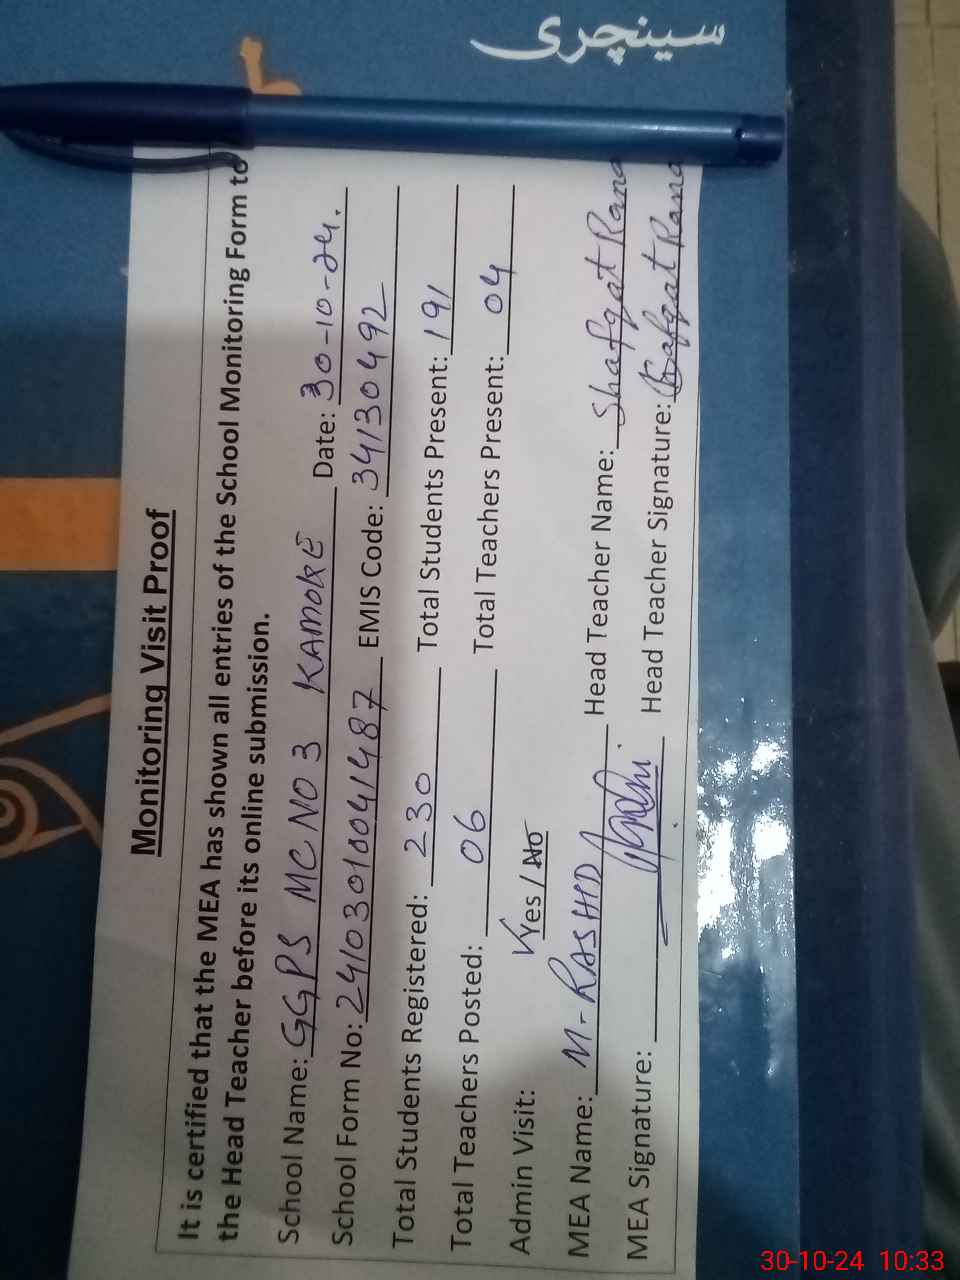 سینچری
Monitoring Visit Proof
It is certified that the MEA has shown all entries of the School Monitoring Form to
the Head Teacher before its online submission.
School Name: GGPS MC NO 3 KAMOKE Date: 30-10-24.
School Form No: 24103010041487 EMIS Code: 34130492
Total Students Registered: 230 Total Students Present: 191
Total Teachers Posted: 06 Total Teachers Present: 04
Admin Visit: ✓Yes / No
MEA Name: M-RASHID Head Teacher Name: Shafqat Rana
MEA Signature: Head Teacher Signature: Shafqat Rana
30-10-24 10:33